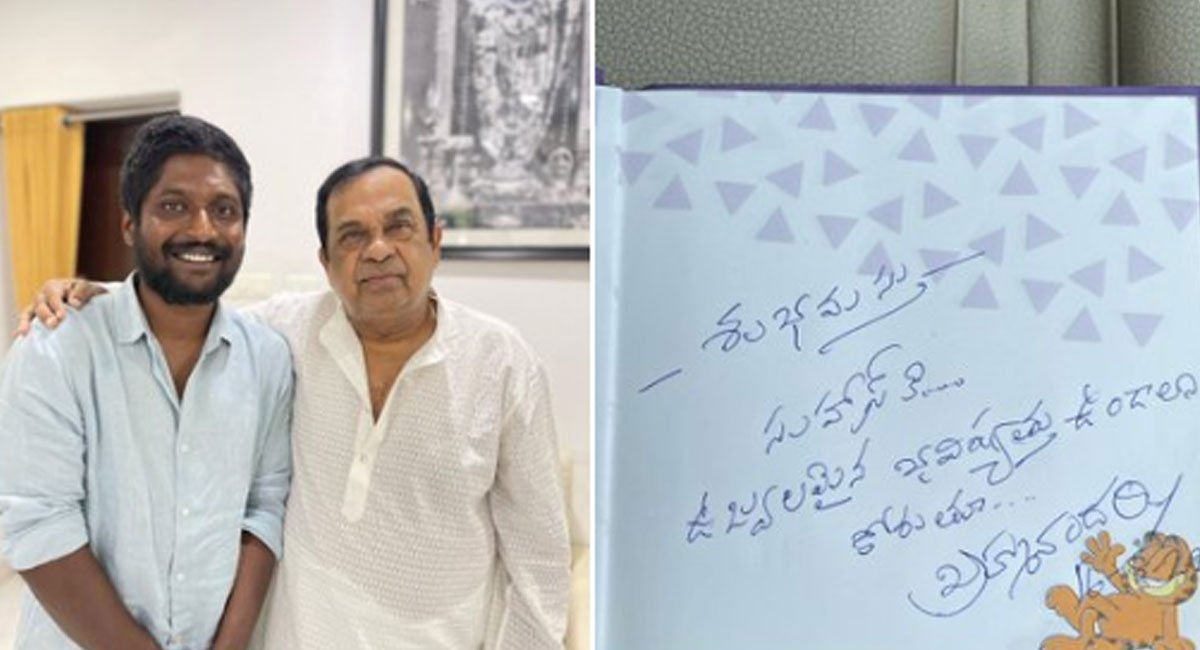 శుభమస్తు
సుహాస్ కి....
ఉజ్వలమైన భవిష్యత్తు ఉండాలని
కోరుతూ....
బ్రహ్మానందం